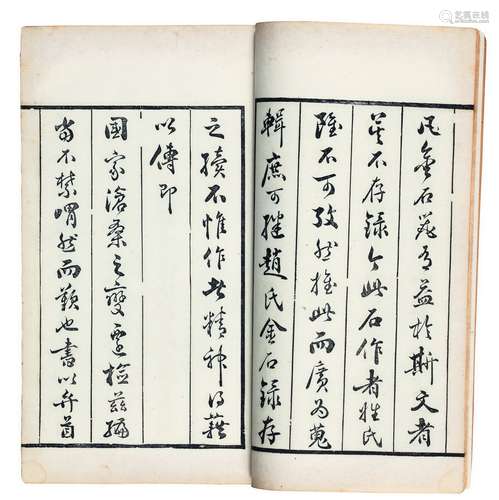 凡金石苟有益於斯文者
莫不存錄今此石作者姓氏
雖不可考然推此而廣為蒐
輯庶可繼趙氏金石錄存
之續不惟作者精神得藉
以傳即
國家滄桑之變遷檢茲編
當不禁喟然而嘆也書以弁首